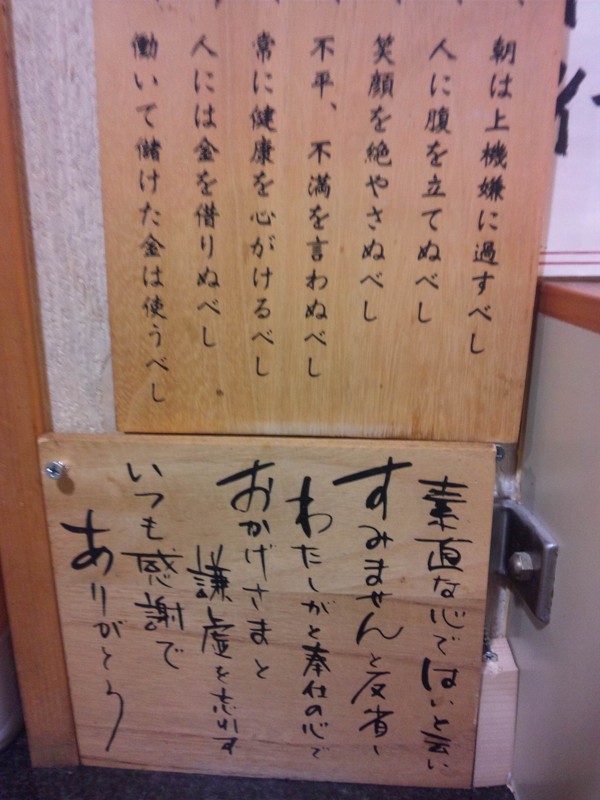 朝は上機嫌に過すべし
人に腹を立てぬべし
笑顔を絶やさぬべし
不平、不満を言わぬべし
常に健康を心がけるべし
人には金を借りぬべし
働いて儲けた金は使うべし
素直な心ではいと言い
すみませんと反省し
わたしがと奉仕の心で
おかげさまと
謙虚を忘れず
いつも感謝で
ありがとう